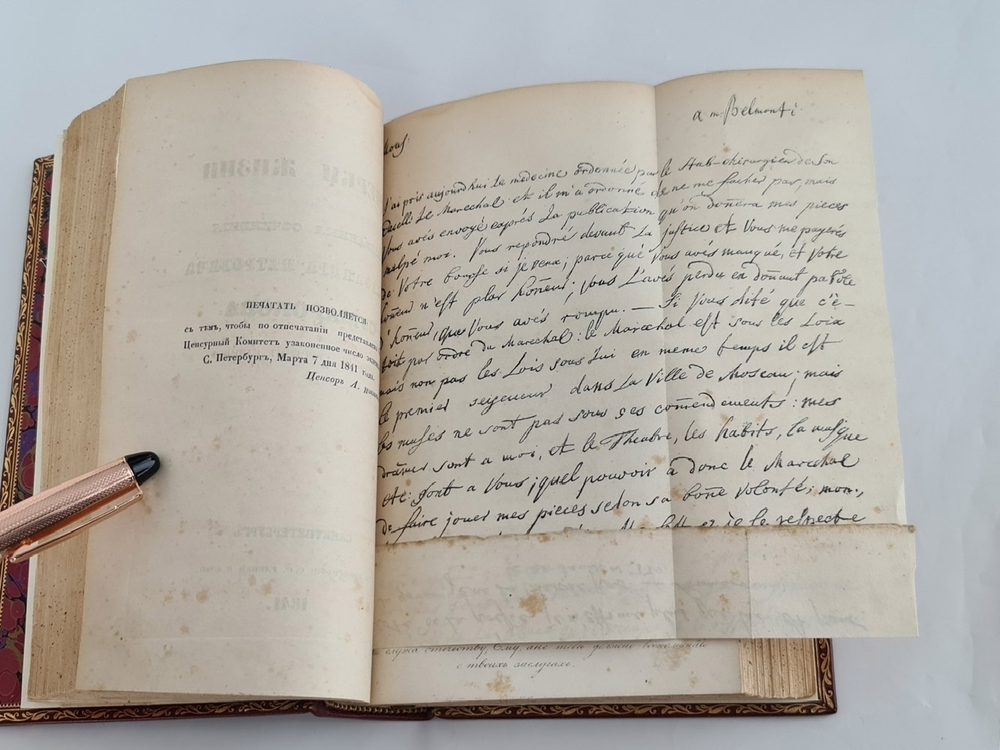 ПЕЧАТАТЬ ПОЗВОЛЯЕТСЯ
съ тѣмъ, чтобы по отпечатаніи представлено
Ценсурный Комитетъ узаконенное число
С. Петербургъ, Марта 7 дня 1841 года.
Ценсоръ А.
a m: Belmonti
J'ai pris aujourd'hui la medecine ordonnée par le chirurgien de Son
le Marechal et il m'a ordonné de ne me facher pas, mais
Vous avés envoyé exprés la publication qu'on donera mes pieces
malgré moi. Vous repondré devant la justice et Vous me payerés
de Votre bourse si je veux; parce que Vous avés manqué, et Votre
n'est plus honeur; Vous l'avés perdu en donant parole
d'honeur, que Vous avés rompu. — Si Vous dité que c'é-
toit par ordre du Marechal: le Marechal est sous les Loix
mais non pas les Lois sous lui en meme temps il est
le premier seigneur dans la Ville de Moscau; mais
les muses ne sont pas sous ses comendements: mes
drames sont a moi, et le Theatre, les habits, la musique
etc: sont a Vous; quel pouvoir a donc le Marechal
de faire jouer mes pieces selon sa bone volonté; mon,
et je le respecte
служа отечеству, Ему, мне
о твоихъ заслугахъ.